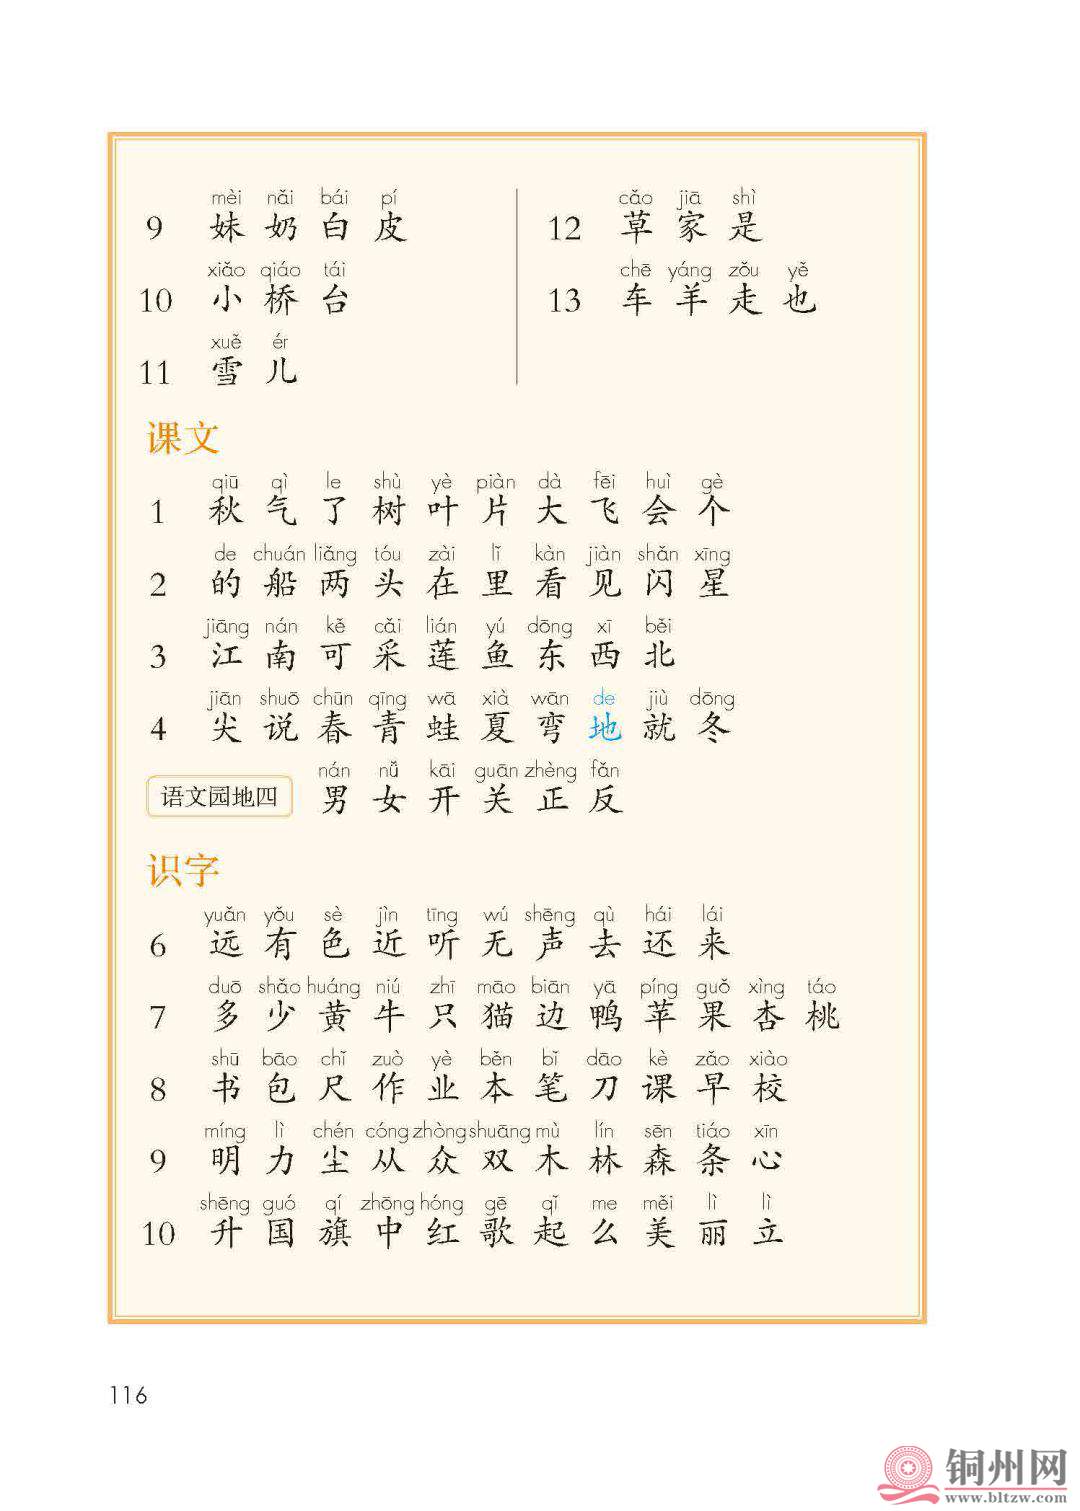 mèi nǎi bái pí
9 妹 奶 白 皮
xiǎo qiáo tái
10 小 桥 台
xuě ér
11 雪 儿
cǎo jiā shì
12 草 家 是
chē yáng zǒu yě
13 车 羊 走 也
课文
qiū qì le shù yè piàn dà fēi huì gè
1 秋 气 了 树 叶 片 大 飞 会 个
de chuán liǎng tóu zài lǐ kàn jiàn shǎn xīng
2 的 船 两 头 在 里 看 见 闪 星
jiāng nán kě cǎi lián yú dōng xī běi
3 江 南 可 采 莲 鱼 东 西 北
jiān shuō chūn qīng wā xià wān de jiù dōng
4 尖 说 春 青 蛙 夏 弯 地 就 冬
nán nǚ kāi guān zhèng fǎn
语文园地四 男 女 开 关 正 反
识字
yuǎn yǒu sè jìn tīng wú shēng qù hái lái
6 远 有 色 近 听 无 声 去 还 来
duō shǎo huáng niú zhī māo biān yā píng guǒ xìng táo
7 多 少 黄 牛 只 猫 边 鸭 苹 果 杏 桃
shū bāo chǐ zuò yè běn bǐ dāo kè zǎo xiào
8 书 包 尺 作 业 本 笔 刀 课 早 校
míng lì chén cóng zhòng shuāng mù lín sēn tiáo xīn
9 明 力 尘 从 众 双 木 林 森 条 心
shēng guó qí zhōng hóng gē qǐ me měi lì lì
10 升 国 旗 中 红 歌 起 么 美 丽 立
116
铜州网
www.bltzw.com